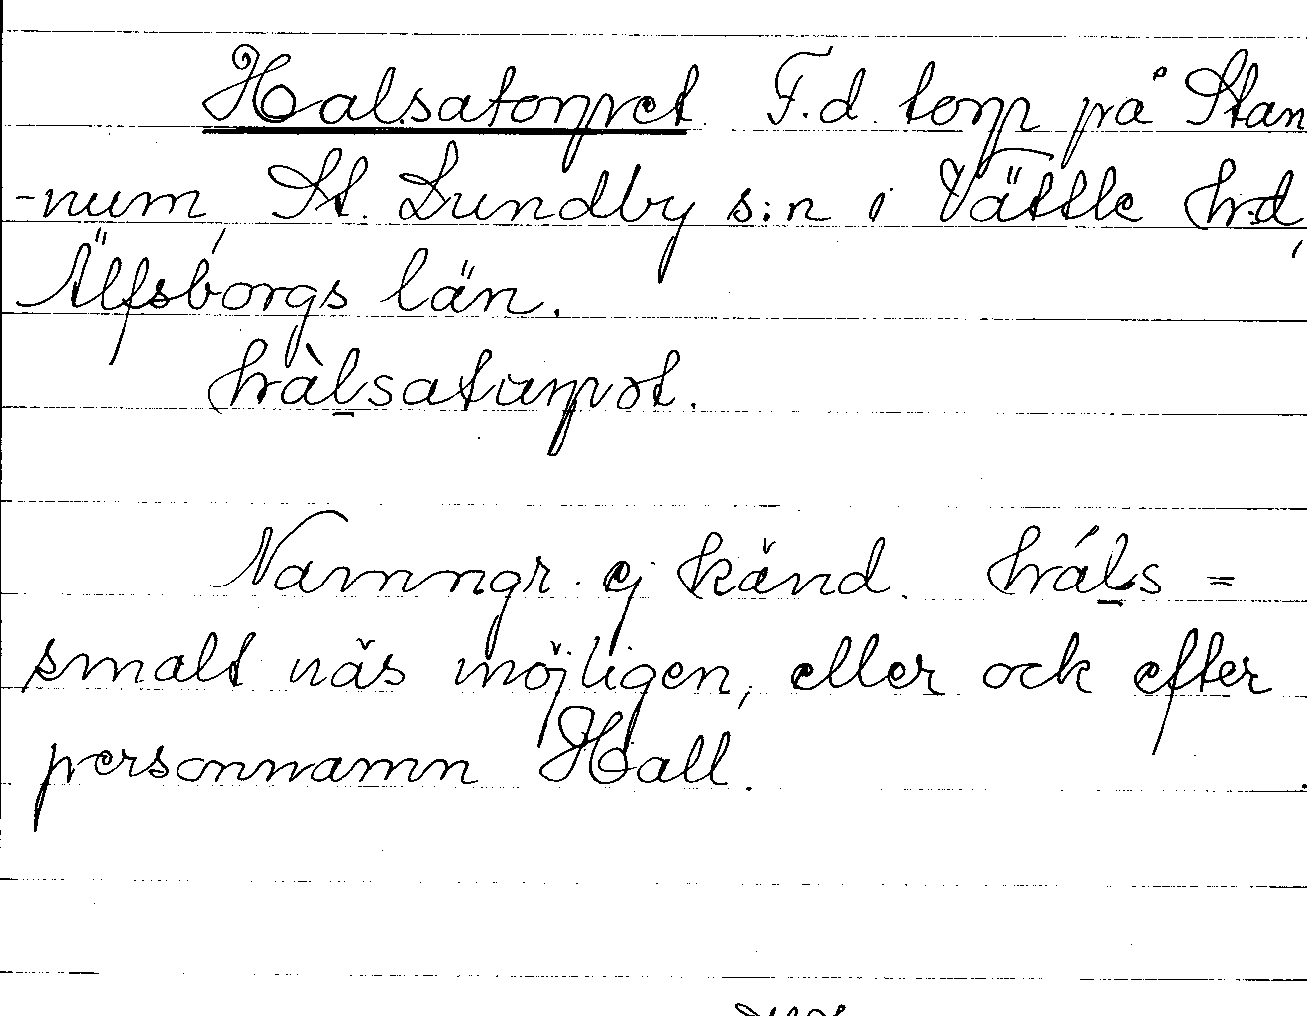 Halsatorpet F.d. torp på Stan
-num, St. Lundby s:n i Vättle hd,
Älfsborgs län.
hàl̲saturpət.
Namngr. ej känd. hál̲s =
smalt näs möjligen, eller ock efter
personnamn Hall.